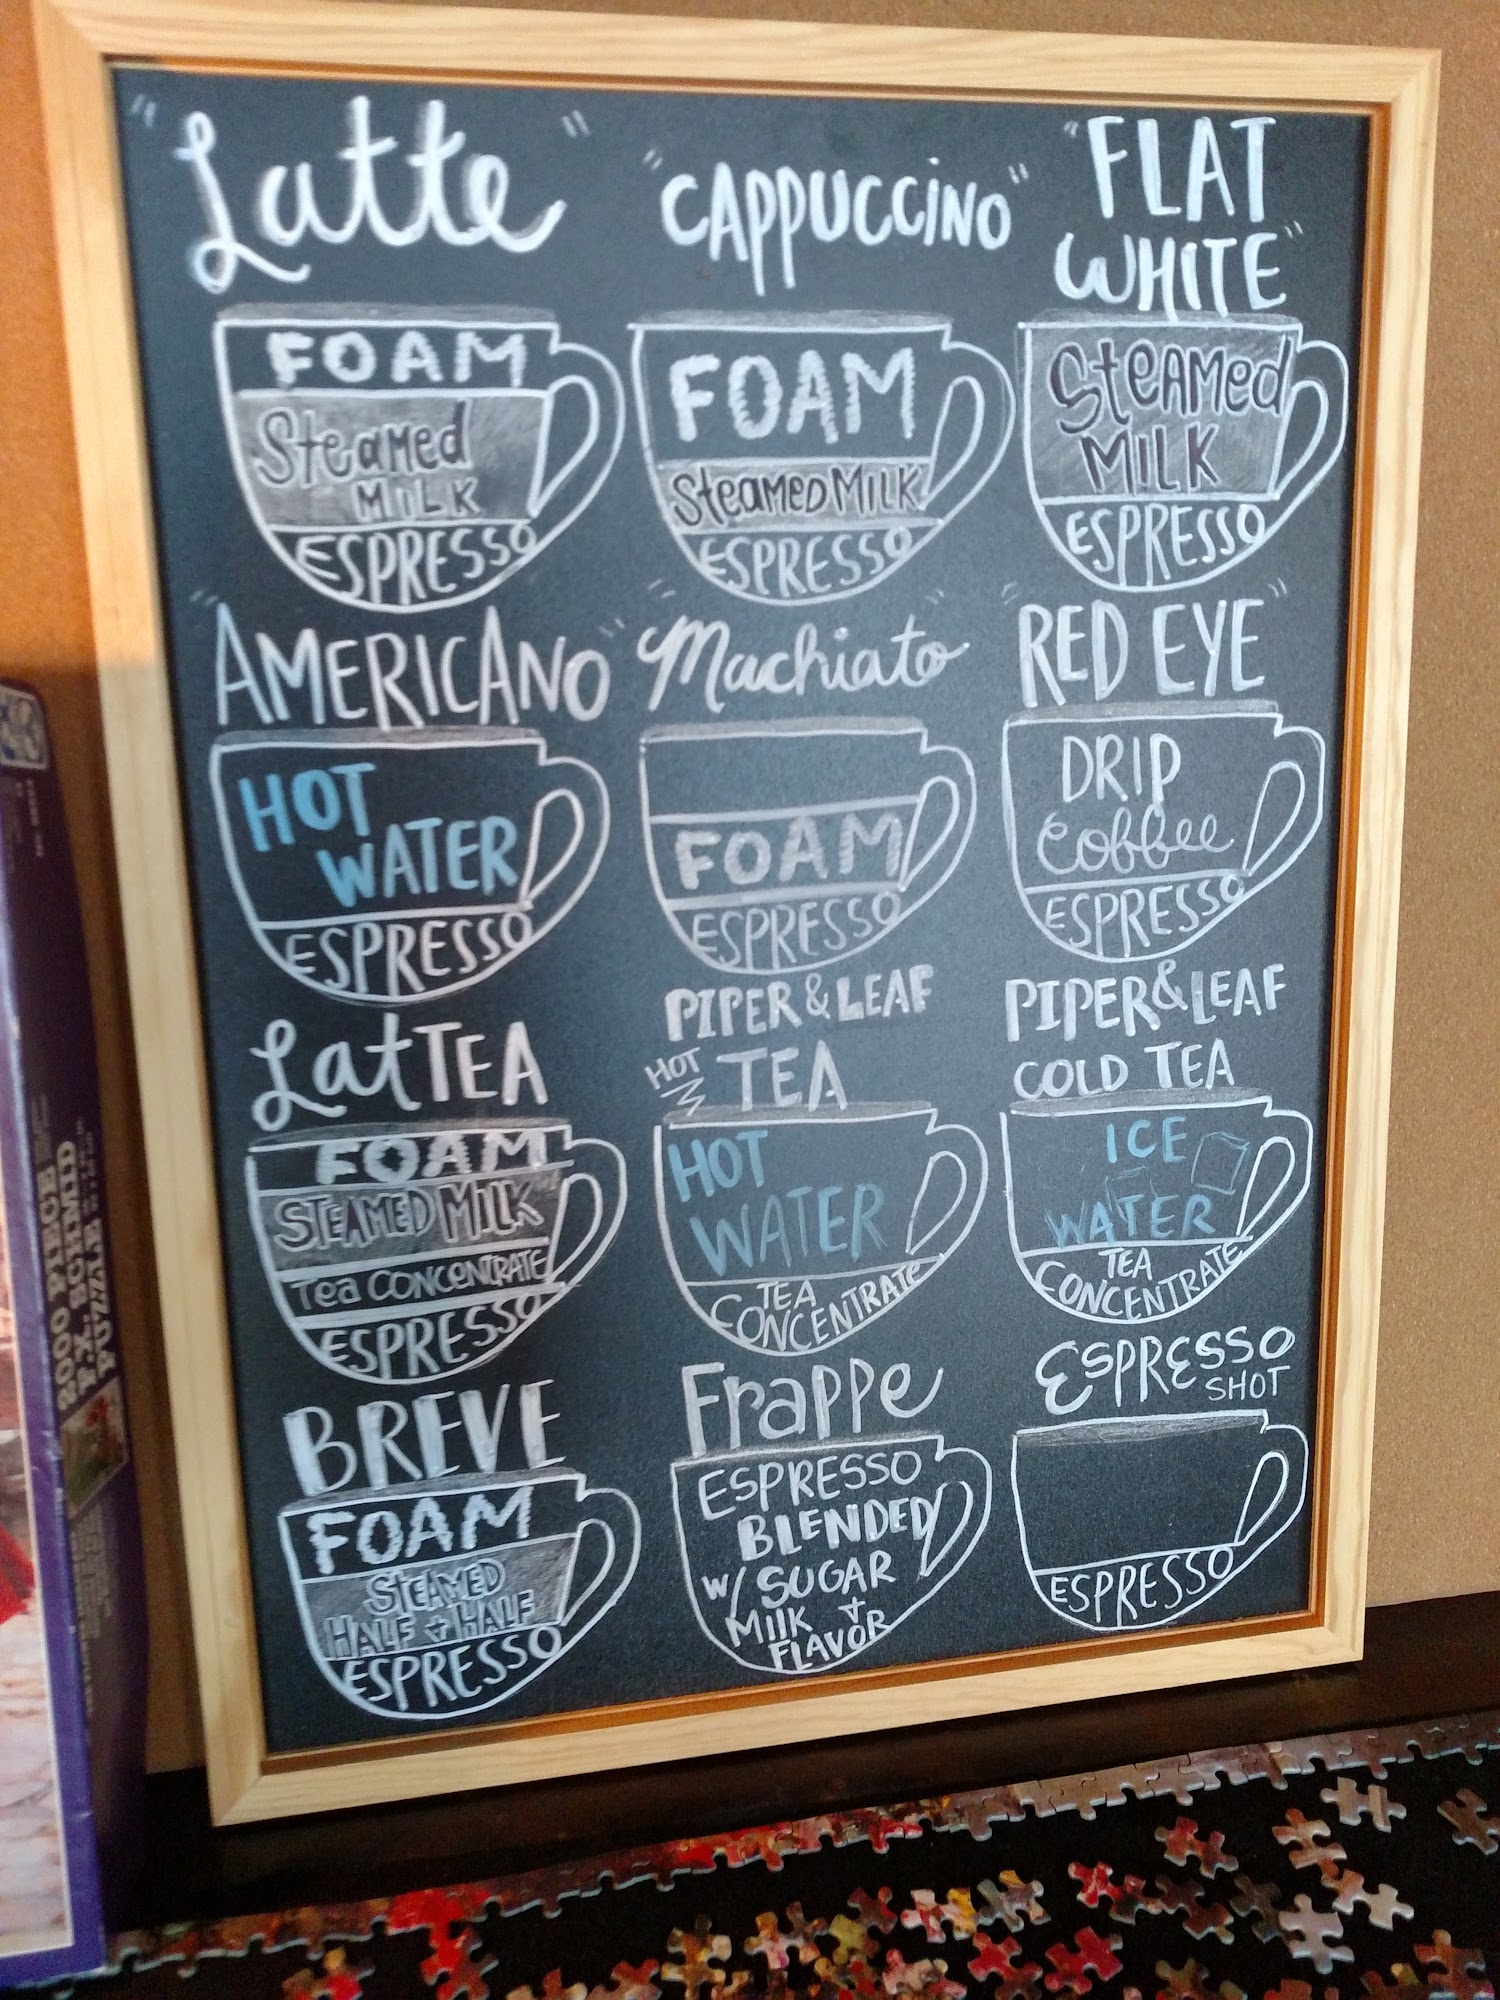 "Latte"
FOAM
Steamed
MILK
ESPRESSO
"CAPPUCCINO"
FOAM
SteamedMILK
ESPRESSO
"FLAT
WHITE"
Steamed
MILK
ESPRESSO
"AMERICANO"
HOT
WATER
ESPRESSO
"Machiato"
FOAM
ESPRESSO
"RED EYE"
DRIP
Coffee
ESPRESSO
LatTEA
FOAM
STEAMED MILK
Tea CONCENTRATE
ESPRESSO
PIPER & LEAF
HOT TEA
HOT
WATER
TEA
CONCENTRATE
PIPER & LEAF
COLD TEA
ICE
WATER
TEA
CONCENTRATE
BREVE
FOAM
STEAMED
HALF + HALF
ESPRESSO
Frappe
ESPRESSO
BLENDED
W/ SUGAR
MIlK +
FLAVOR
ESPRESSO
SHOT
ESPRESSO
2000 PIECE
PUZZLE